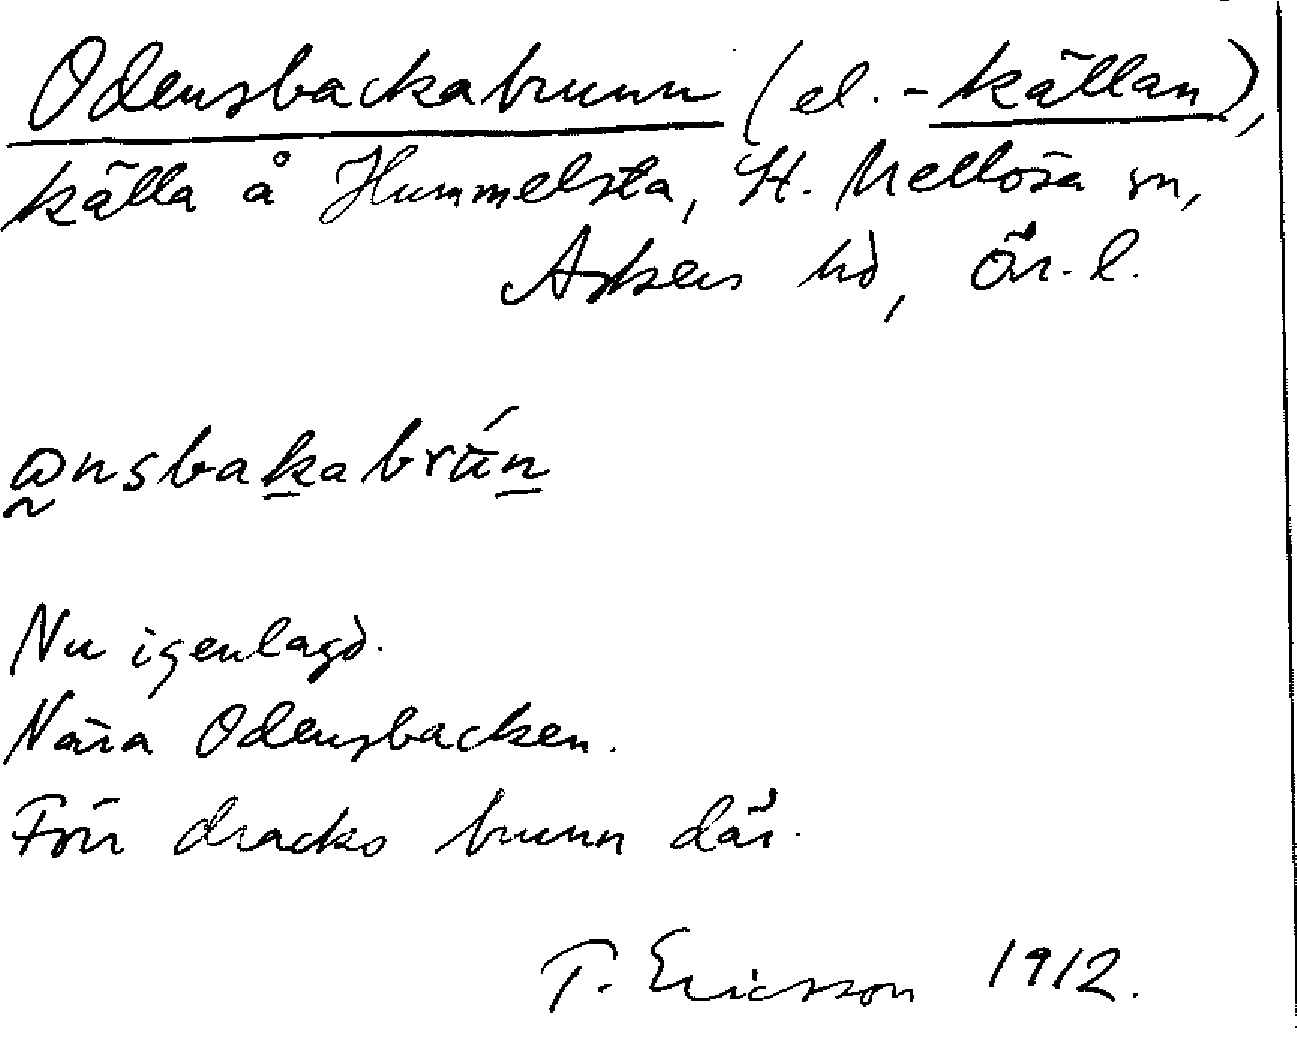 Odensbackabrunn (el. -källan),
källa å Hummelsta, St. Mellösa sn,
Askers hd, Ör. l.
ansbakabrún
Nu igenlagd.
Nära Odensbacken.
Förr dracks brunn där.
T. Ericsson 1912.